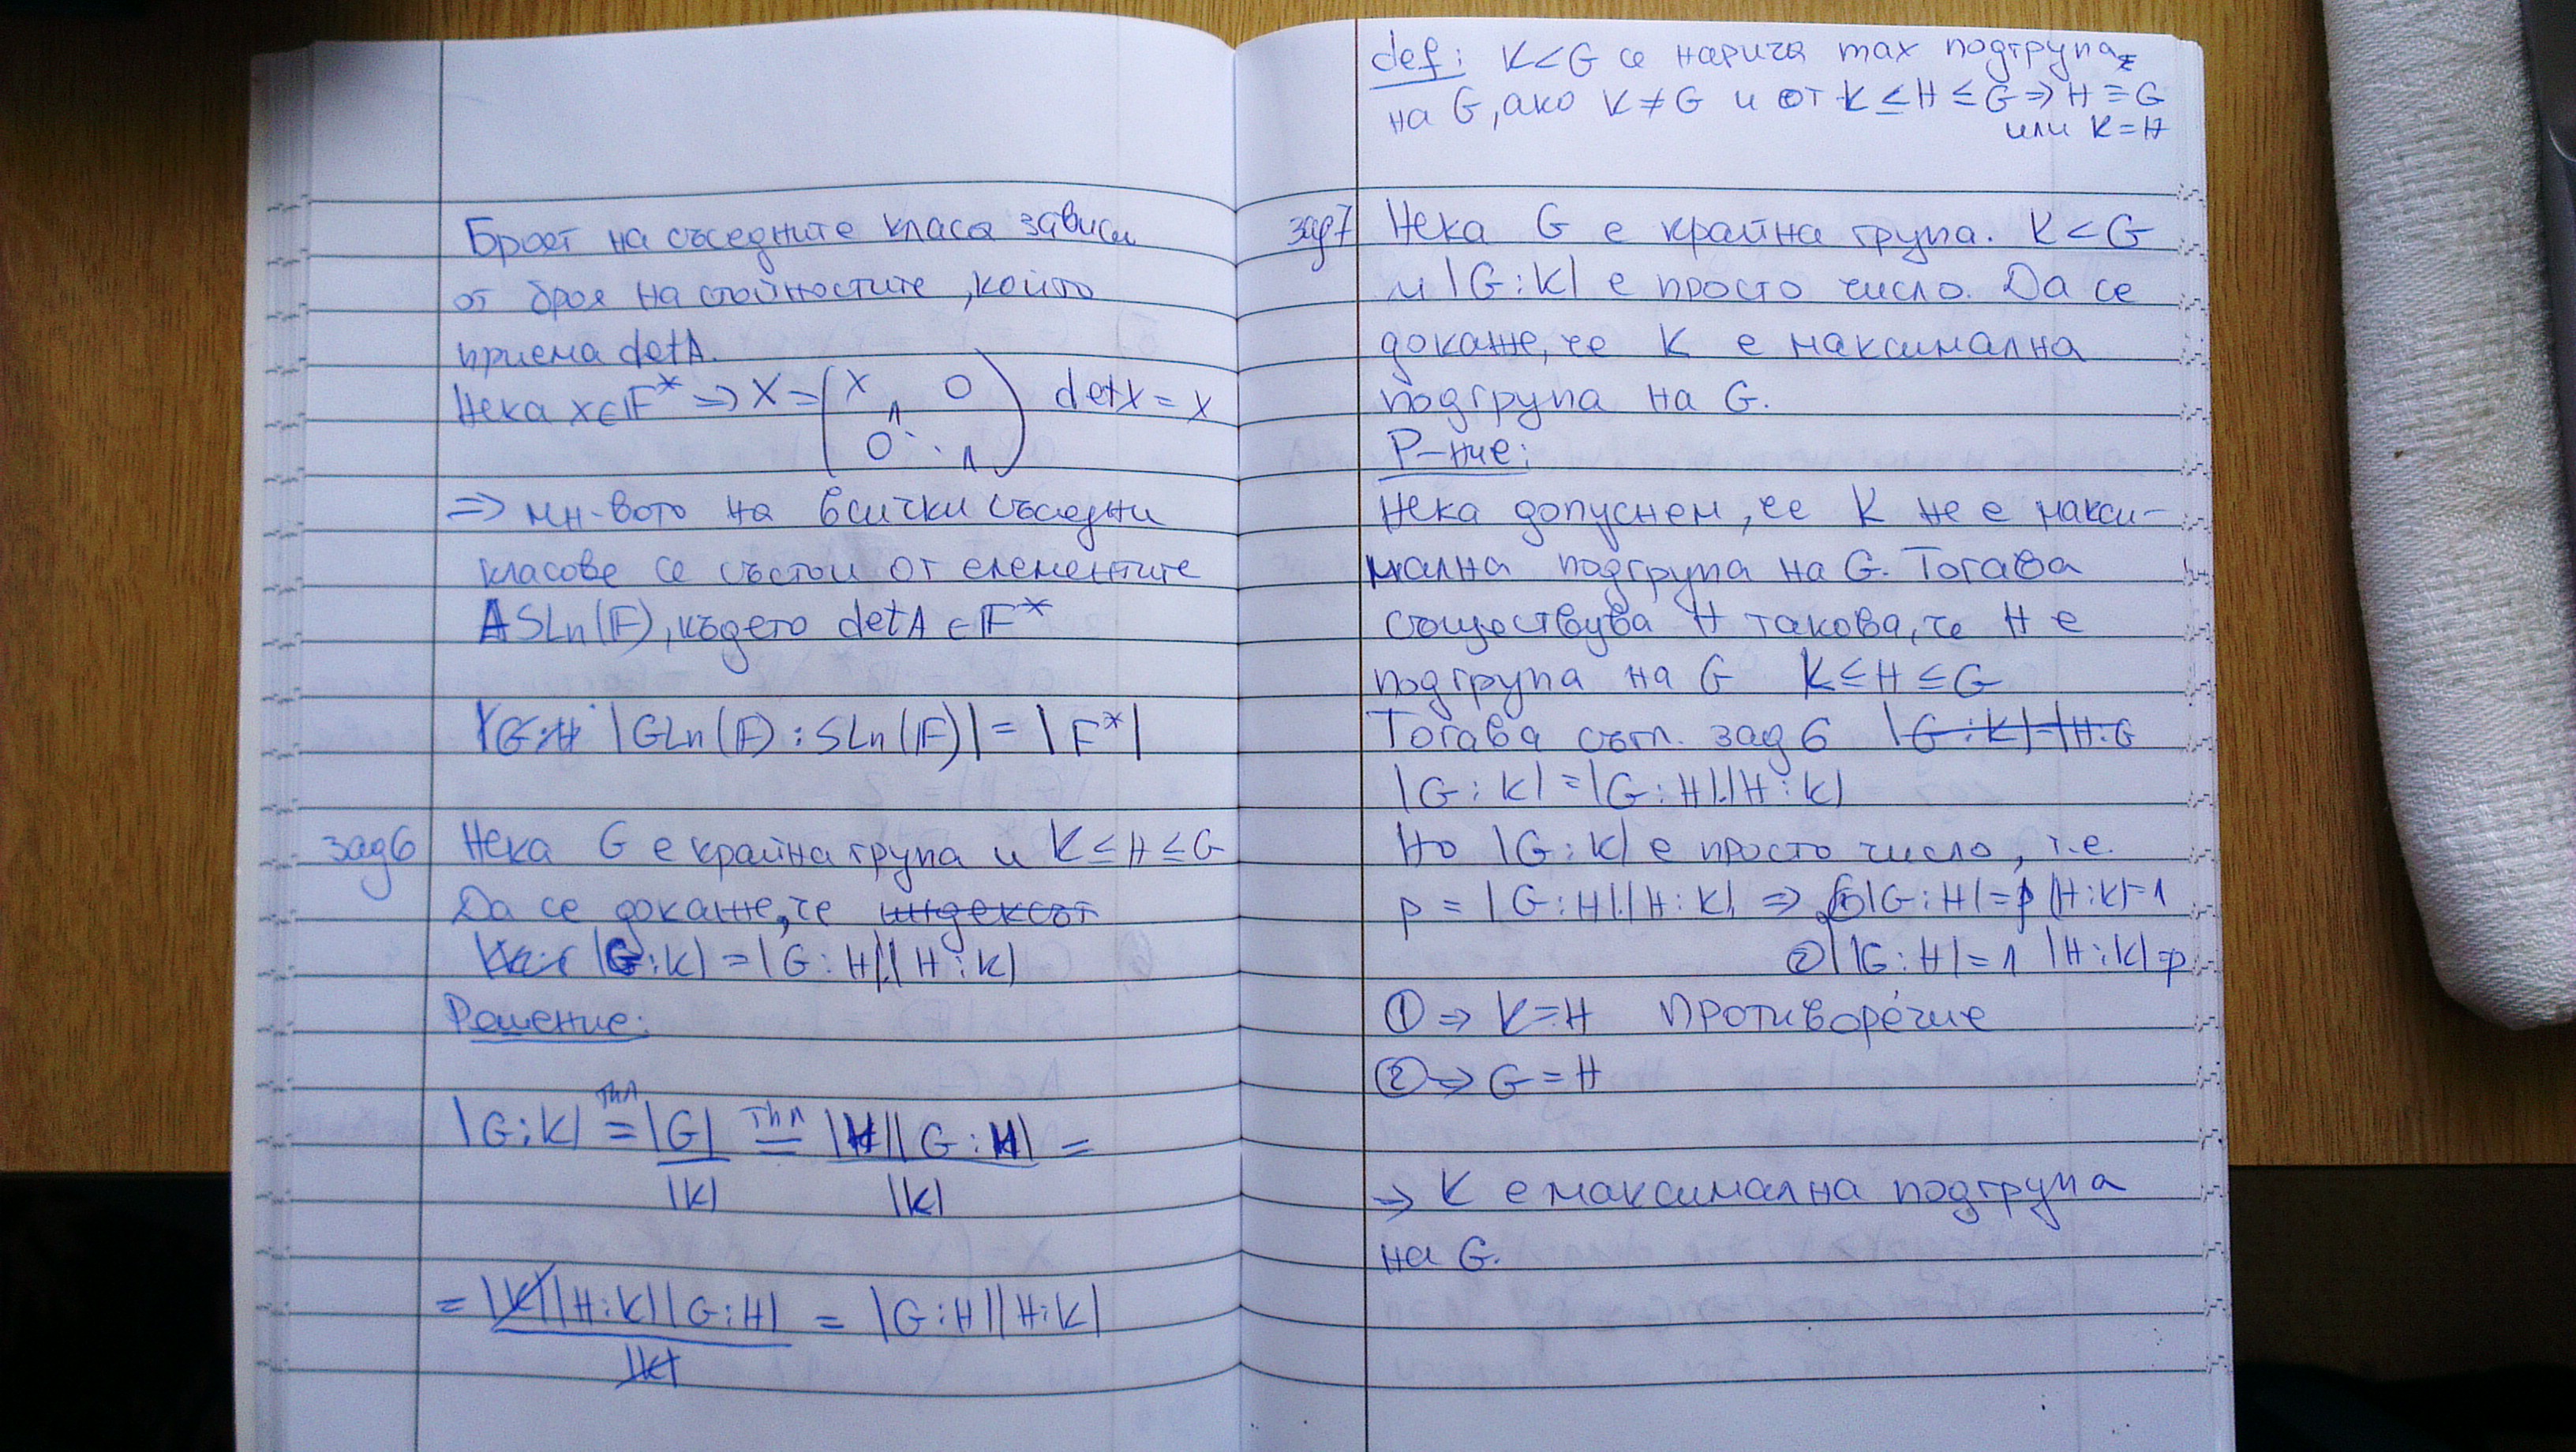 Броят на съседните класа зависи
от броя на стойностите, който
приема detA.
Нека x∈F* => X = (x 0 1 0 ⋱ 1) detX = x
=> мн-вото на всички съседни
класове се състои от елементите
ASLn(F), където detA ∈ F*
|G:H |GLn(F) : SLn(F)| = |F*|
зад6 Нека G е крайна група и K ≤ H ≤ G
Да се докаже, че индексът
|G:K| = |G:H|.|H:K|
Решение:
|G:K| =ThΛ |G|/|K| =ThΛ |H||G:H|/|K| =
= |K||H:K||G:H|/|K| = |G:H||H:K|
def: K<G се нарича max подгрупа
на G, ако K ≠ G и от K ≤ H ≤ G => H ≡ G
или K = H
зад7 Нека G е крайна група. K < G
и |G:K| е просто число. Да се
докаже, че K е максимална
подгрупа на G.
Р-ние:
Нека допуснем, че K не е макси-
мална подгрупа на G. Тогава
съществува H такова, че H е
подгрупа на G K ≤ H ≤ G
Тогава съгл. зад 6 |G:K|=|H:G
|G:K| = |G:H|.|H:K|
Но |G:K| е просто число, т.е.
p = |G:H|.|H:K| => |G:H| = p |H:K|=1
② |G:H| = 1 |H:K| = p
① => K = H противоречие
② => G = H
=> K е максимална подгрупа
на G.